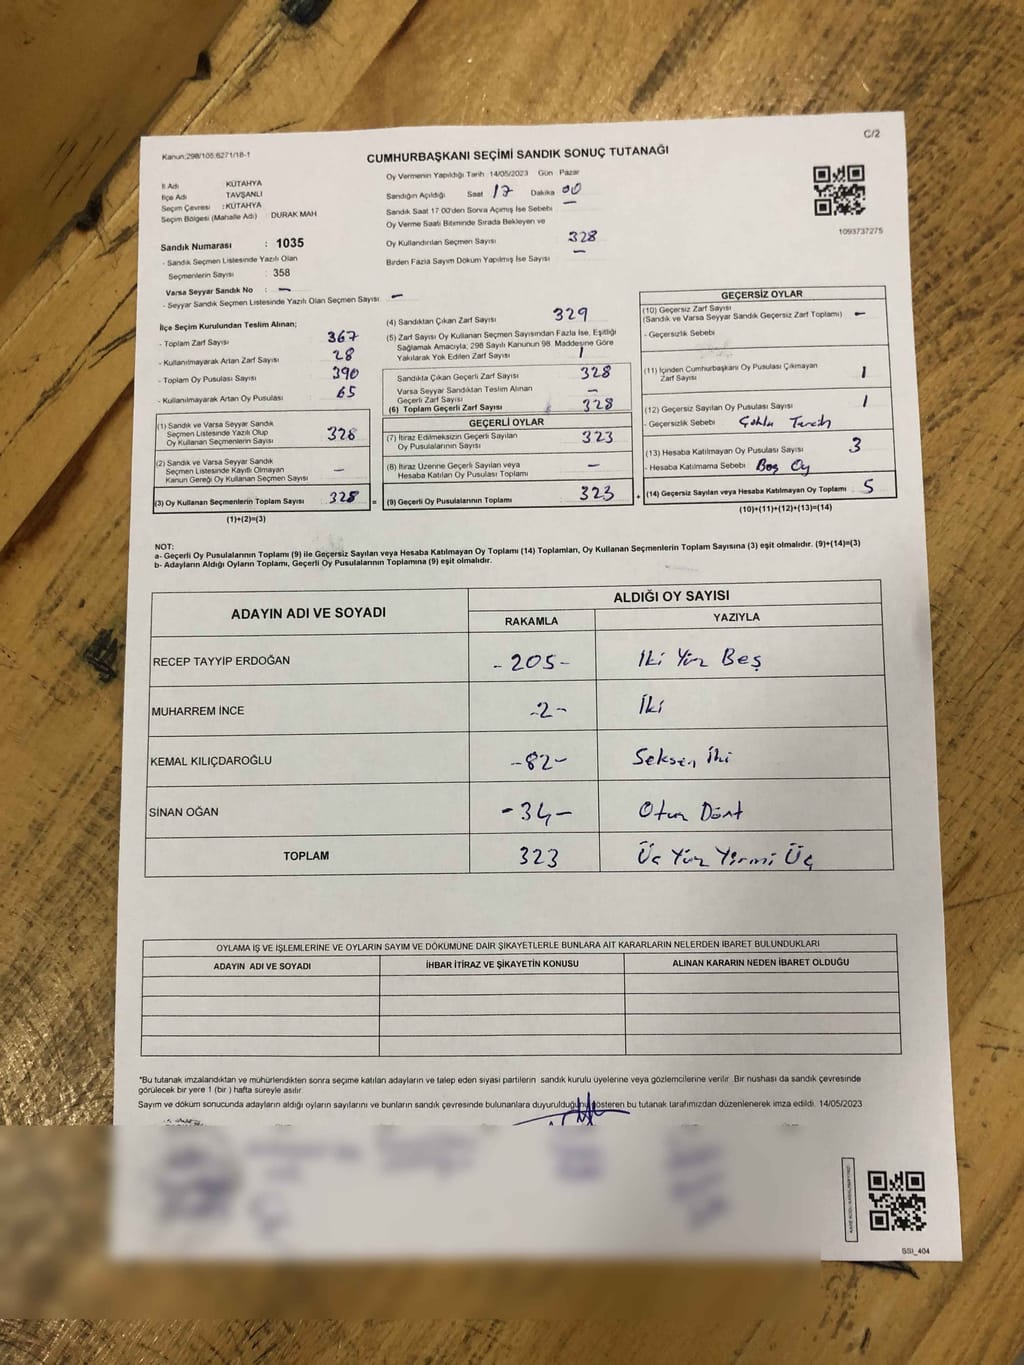 Kanun:298/105;6271/18-1
C/2
CUMHURBAŞKANI SEÇİMİ SANDIK SONUÇ TUTANAĞI
İl Adı KÜTAHYA
İlçe Adı TAVŞANLI
Seçim Çevresi : KÜTAHYA
Seçim Bölgesi (Mahalle Adı) : DURAK MAH
Oy Vermenin Yapıldığı Tarih : 14/05/2023 Gün Pazar
Sandığın Açıldığı Saat 17 Dakika 00
Sandık Saat 17:00'den Sonra Açımış İse Sebebi —
Oy Verme Saati Bitiminde Sırada Bekleyen ve
Oy Kullandırılan Seçmen Sayısı 328
Birden Fazla Sayım Döküm Yapılmış İse Sayısı —
1093737275
Sandık Numarası : 1035
- Sandık Seçmen Listesinde Yazılı Olan
Seçmenlerin Sayısı : 358
Varsa Seyyar Sandık No : —
- Seyyar Sandık Seçmen Listesinde Yazılı Olan Seçmen Sayısı : —
İlçe Seçim Kurulundan Teslim Alınan;
- Toplam Zarf Sayısı 367
- Kullanılmayarak Artan Zarf Sayısı 28
- Toplam Oy Pusulası Sayısı 390
- Kullanılmayarak Artan Oy Pusulası 65
(1) Sandık ve Varsa Seyyar Sandık
Seçmen Listesinde Yazılı Olup
Oy Kullanan Seçmenlerin Sayısı 328
(2) Sandık ve Varsa Seyyar Sandık
Seçmen Listesinde Kayıtlı Olmayan
Kanun Gereği Oy Kullanan Seçmen Sayısı —
(3) Oy Kullanan Seçmenlerin Toplam Sayısı 328 =
(1)+(2)=(3)
(4) Sandıktan Çıkan Zarf Sayısı 329
(5) Zarf Sayısı Oy Kullanan Seçmen Sayısından Fazla İse, Eşitliği
Sağlamak Amacıyla; 298 Sayılı Kanunun 98. Maddesine Göre
Yakılarak Yok Edilen Zarf Sayısı 1
Sandıkta Çıkan Geçerli Zarf Sayısı 328
Varsa Seyyar Sandıktan Teslim Alınan
Geçerli Zarf Sayısı —
(6) Toplam Geçerli Zarf Sayısı 328
GEÇERLİ OYLAR
(7) İtiraz Edilmeksizin Geçerli Sayılan
Oy Pusulasının Sayısı 323
(8) İtiraz Üzerine Geçerli Sayılan veya
Hesaba Katılan Oy Pusulası Toplamı —
(9) Geçerli Oy Pusulalarının Toplamı 323 +
GEÇERSİZ OYLAR
(10) Geçersiz Zarf Sayısı
(Sandık ve Varsa Seyyar Sandık Geçersiz Zarf Toplamı) —
- Geçersizlik Sebebi
(11) İçinden Cumhurbaşkanı Oy Pusulası Çıkmayan
Zarf Sayısı 1
(12) Geçersiz Sayılan Oy Pusulası Sayısı 1
- Geçersizlik Sebebi Çoklu Tercih
(13) Hesaba Katılmayan Oy Pusulası Sayısı 3
- Hesaba Katılmama Sebebi Boş Oy
(14) Geçersiz Sayılan veya Hesaba Katılmayan Oy Toplamı 5
(10)+(11)+(12)+(13)=(14)
NOT:
a- Geçerli Oy Pusulalarının Toplamı (9) ile Geçersiz Sayılan veya Hesaba Katılmayan Oy Toplamı (14) Toplamları, Oy Kullanan Seçmenlerin Toplam Sayısına (3) eşit olmalıdır. (9)+(14)=(3)
b- Adayların Aldığı Oyların Toplamı, Geçerli Oy Pusulalarının Toplamına (9) eşit olmalıdır.
ADAYIN ADI VE SOYADI ALDIĞI OY SAYISI
RAKAMLA YAZIYLA
RECEP TAYYİP ERDOĞAN - 205 - İki Yüz Beş
MUHARREM İNCE - 2 - İki
KEMAL KILIÇDAROĞLU - 82 - Seksen İki
SİNAN OĞAN - 34 - Otuz Dört
TOPLAM 323 Üç Yüz Yirmi Üç
OYLAMA İŞ VE İŞLEMLERİNE VE OYLARIN SAYIM VE DÖKÜMÜNE DAİR ŞİKAYETLERLE BUNLARA AİT KARARLARIN NELERDEN İBARET BULUNDUKLARI
ADAYIN ADI VE SOYADI İHBAR İTİRAZ VE ŞİKAYETİN KONUSU ALINAN KARARIN NEDEN İBARET OLDUĞU
"Bu tutanak imzalandıktan ve mühürlendikten sonra seçime katılan adayların ve talep eden siyasi partilerin sandık kurulu üyelerine veya gözlemcilerine verilir. Bir nüshası da sandık çevresinde
görülecek bir yere 1 (bir ) hafta süreyle asılır.
Sayım ve döküm sonucunda adayların aldığı oyların sayılarını ve bunların sandık çevresinde bulunanlara duyurulduğunu gösteren bu tutanak tarafımızdan düzenlenerek imza edildi. 14/05/2023
SSI_404